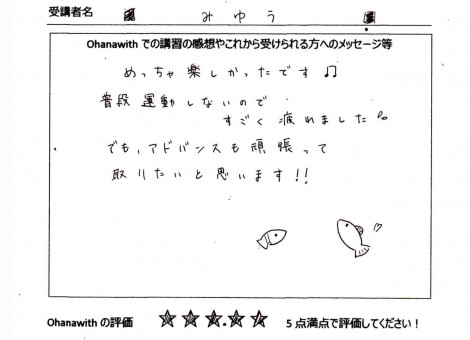 受講者名 みゆう
Ohanawith での講習の感想やこれから受けられる方へのメッセージ等
めっちゃ楽しかったです♫
普段運動しないので
すごく疲れました。
でも、アドバンスも頑張って
取りたいと思います!!
Ohanawith の評価 ★★★★★ 5点満点で評価してください!